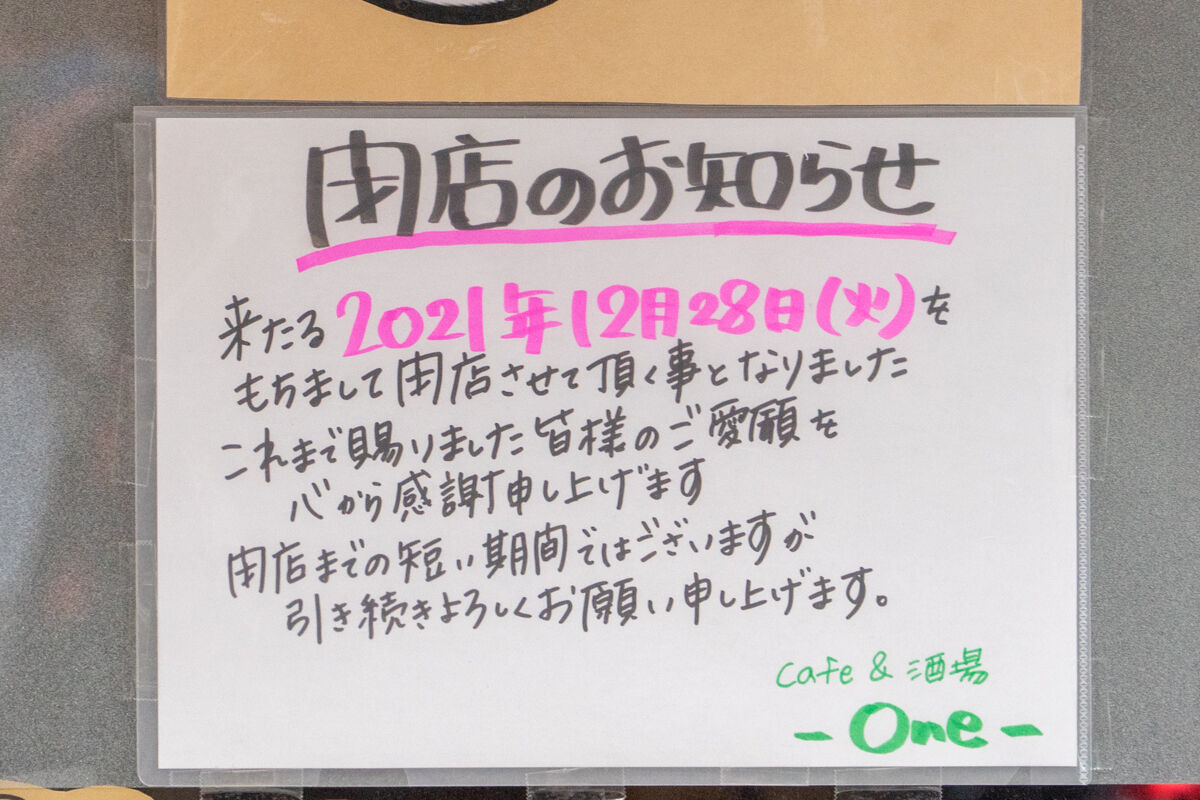 閉店のお知らせ
来たる2021年12月28日(火)を
もちまして閉店させて頂く事となりました
これまで賜りました皆様のご愛願を
心から感謝申し上げます
閉店までの短い期間ではございますが
引き続きよろしくお願い申し上げます。
cafe & 酒場
-One-